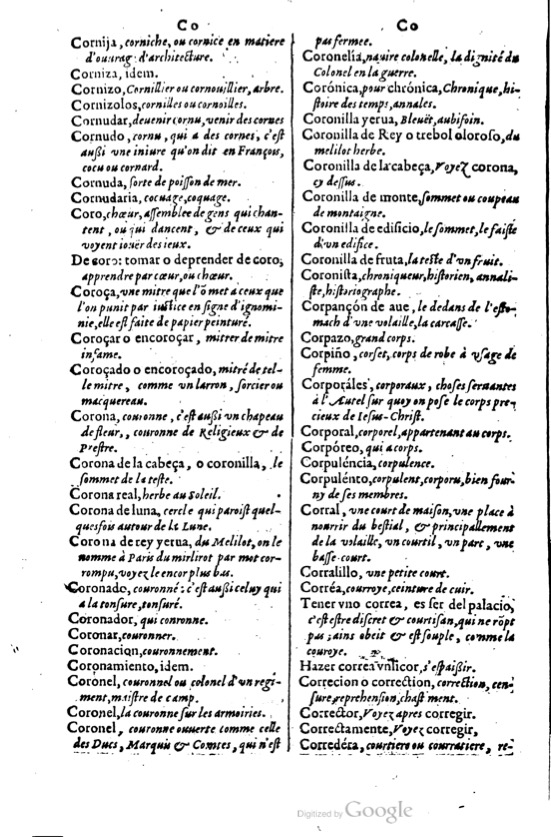 Co
Cornija, corniche, ou cornice en matiere
d'ouurag: d'architecture.
Corniza, idem.
Cornizo, Cornillier ou cornouillier, arbre.
Cornizolos, cornilles ou cornoilles.
Cornudar, deuenir cornu, venir des cornes
Cornudo, cornu, qui a des cornes, c'est
außi vne iniure qu'on dit en François,
cocu ou cornard.
Cornuda, sorte de poisson de mer.
Cornudaria, cocuage, coquage.
Coro, chœur, assemblee de gens qui chan-
tent, ou qui dancent, & de ceux qui
voyent ioüer des ieux.
De coro: tomar o deprender de coro,
apprendre par cœur, ou chœur.
Coroça, vne mitre que l'õ met à ceux que
l'on punit par iustice en signe d'ignomi-
nie, elle est faite de papier peinturé.
Coroçar o encoroçar, mitrer de mitre
infame.
Coroçado o encoroçado, mitré de tel-
le mitre, comme vn larron, sorcier ou
macquereau.
Corona, couronne, c'est außi vn chapeau
de fleur,, couronne de Religieux & de
Prestre.
Corona de la cabeça, o coronilla, le
sommet de la teste.
Corona real, herbe au Soleil.
Corona de luna, cercle qui paroist quel-
quesfois autour de la Lune.
Corona de rey yerua, du Melilot, on le
nomme à Paris du mirlirot par mot cor-
rompu, voyez le encor plus bas.
Coronado, couronné: c'est außi celuy qui
a la tonsure, tonsuré.
Coronador, qui couronne.
Coronar, couronner.
Coronacion, couronnement.
Coronamiento, idem.
Coronel, couronnel ou colonel d'vn regi-
ment, maistre de camp.
Coronel, la couronne sur les armoiries.
Coronel, couronne ouuerte comme celle
des Ducs, Marquis & Comtes, qui n'est
Co
pas fermee.
Coronelía, nauire colonelle, la dignité du
Colonel en la guerre.
Corónica, pour chrónica, Chronique, hi-
stoire des temps, annales.
Coronilla yerua, Bleuët, aubifoin.
Coronilla de Rey o trebol oloroso, du
melilot herbe.
Coronilla de la cabeça, Voyez corona,
cy dessus.
Coronilla de monte, sommet ou coupeau
de montaigne.
Coronilla de edificio, le sommet, le faiste
d'vn edifice.
Coronilla de fruta, la teste d'vn fruit.
Coronista, chroniqueur, historien, annali-
ste, historiographe.
Corpançón de aue, le dedans de l'esto-
mach d'vne volaille, la carcasse.
Corpazo, grand corps.
Corpiño, corset, corps de robe à vsage de
femme.
Corporáles, corporaux, choses seruantes
à l'Autel sur quoy on pose le corps pre-
cieux de Iesus-Christ.
Corporal, corporel, appartenant au corps.
Corpóreo, qui a corps.
Corpuléncia, corpulence.
Corpulénto, corpulent, corporu, bien four-
ny de ses membres.
Corral, vne court de maison, vne place à
nourrir du bestial, & principallement
de la volaille, vn courtil, vn parc, vne
basse-court.
Corralillo, vne petite court.
Corréa, courroye, ceinture de cuir.
Tener vno correa, es ser del palacio,
c'est estre discret & courtisan, qui ne rõpt
pas, ains obeit & est souple, comme la
couroye.
Hazer correa vnlicor, s'espaißir.
Correcion o correction, correction, cen-
sure, reprehension, chastiment.
Corrector, Voyez apres corregir.
Correctamente, Voyez corregir,
Corredéra, courtiere ou courratiere, re-
Digitized by Google